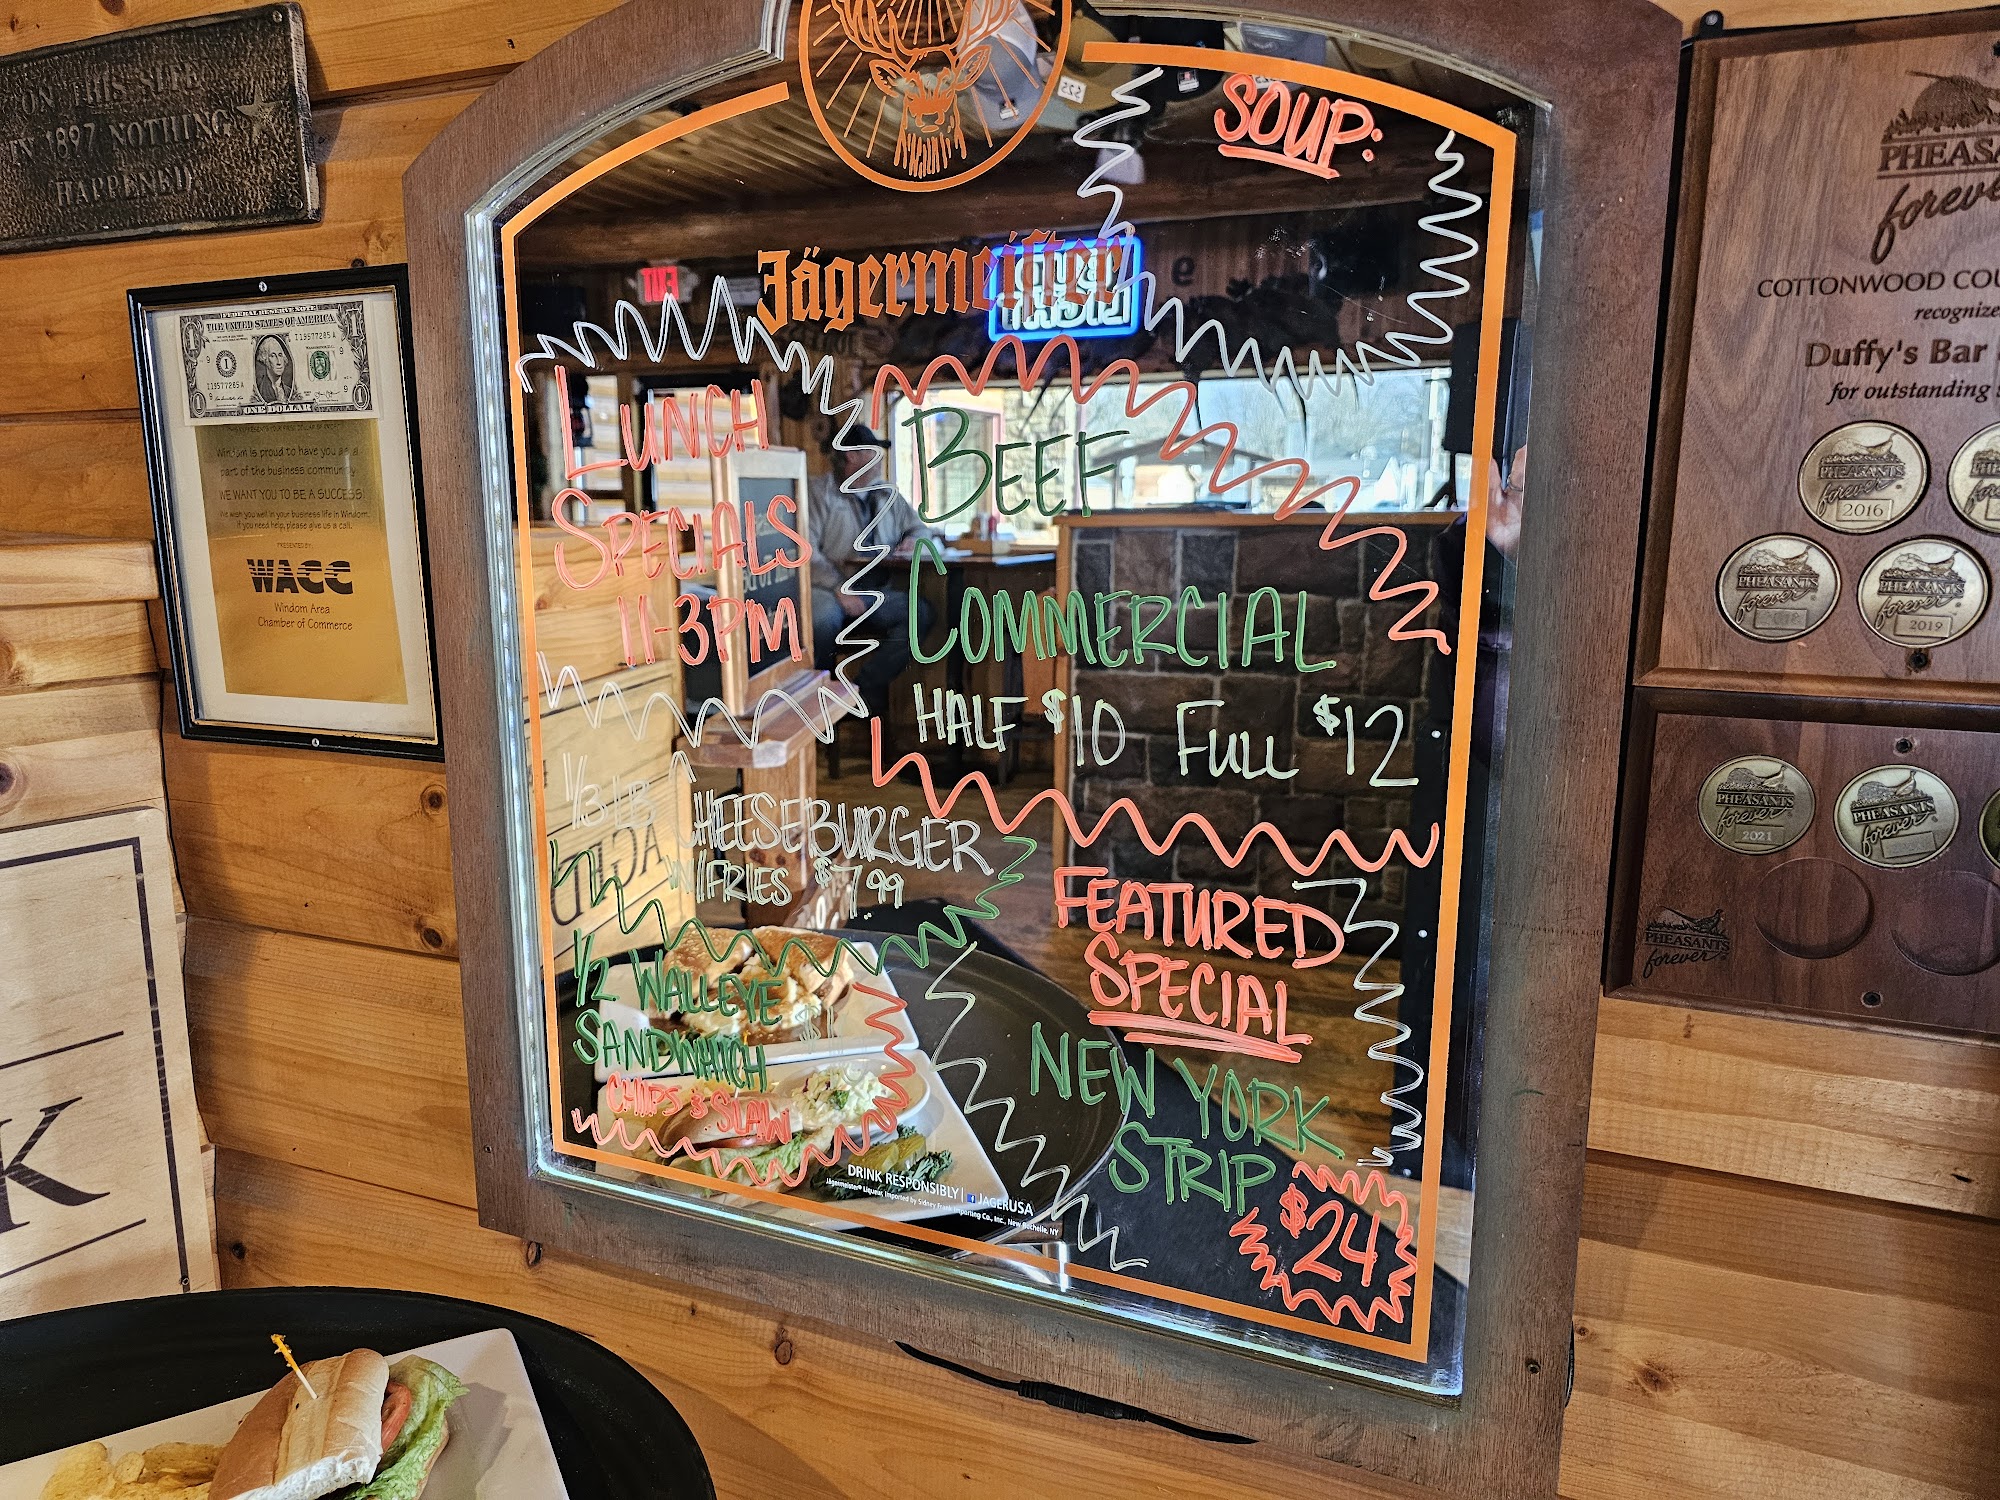 ON THIS SITE
IN 1897 NOTHING
HAPPENED.
FEDERAL RESERVE NOTE
THE UNITED STATES OF AMERICA
I19577285A
I19577285A
ONE DOLLAR
Windom is proud to have you as a
part of the business community
WE WANT YOU TO BE A SUCCESS!
We wish you well in your business life in Windom.
If you need help, please give us a call.
PRESENTED BY
WACC
Windom Area
Chamber of Commerce
K
Jägermeister
EXIT
$25
SOUP:
LUNCH
SPECIALS
11-3PM
1/3 LB CHEESEBURGER
W/FRIES $7.99
1/2 WALLEYE
SANDWHICH
CHIPS & SLAW
BEEF
COMMERCIAL
HALF $10 FULL $12
FEATURED
SPECIAL
NEW YORK
STRIP
$24
DRINK RESPONSIBLY | JAGERUSA
Jägermeister® Liqueur, Imported by Sidney Frank Importing Co., Inc., New Rochelle, NY
PHEASA
forever
COTTONWOOD COU
recognize
Duffy's Bar
for outstanding s
PHEASANTS
forever
2016
PHEASANTS
forever
PHEASANTS
forever
2019
PHEASANTS
forever
2021
PHEASANTS
forever
PHEASANTS
forever